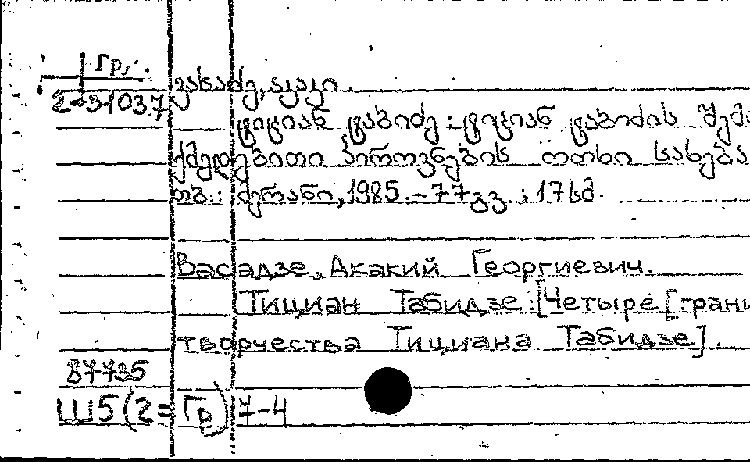 Гр.
2-31037 ვასაძე, აკაკი.
ტიციან ტაბიძე: ტიციან ტაბიძის შემო
ქმედებითი პიროვნების ოთხი სახება
თბ.: მერანი, 1985. – 77 გვ.; 17 სმ.
Васадзе, Акакий Георгиевич.
Тициан Табидзе: [Четыре [грани
творчества Тициана Табидзе].
87735
Ш5(2=Гр)7-4